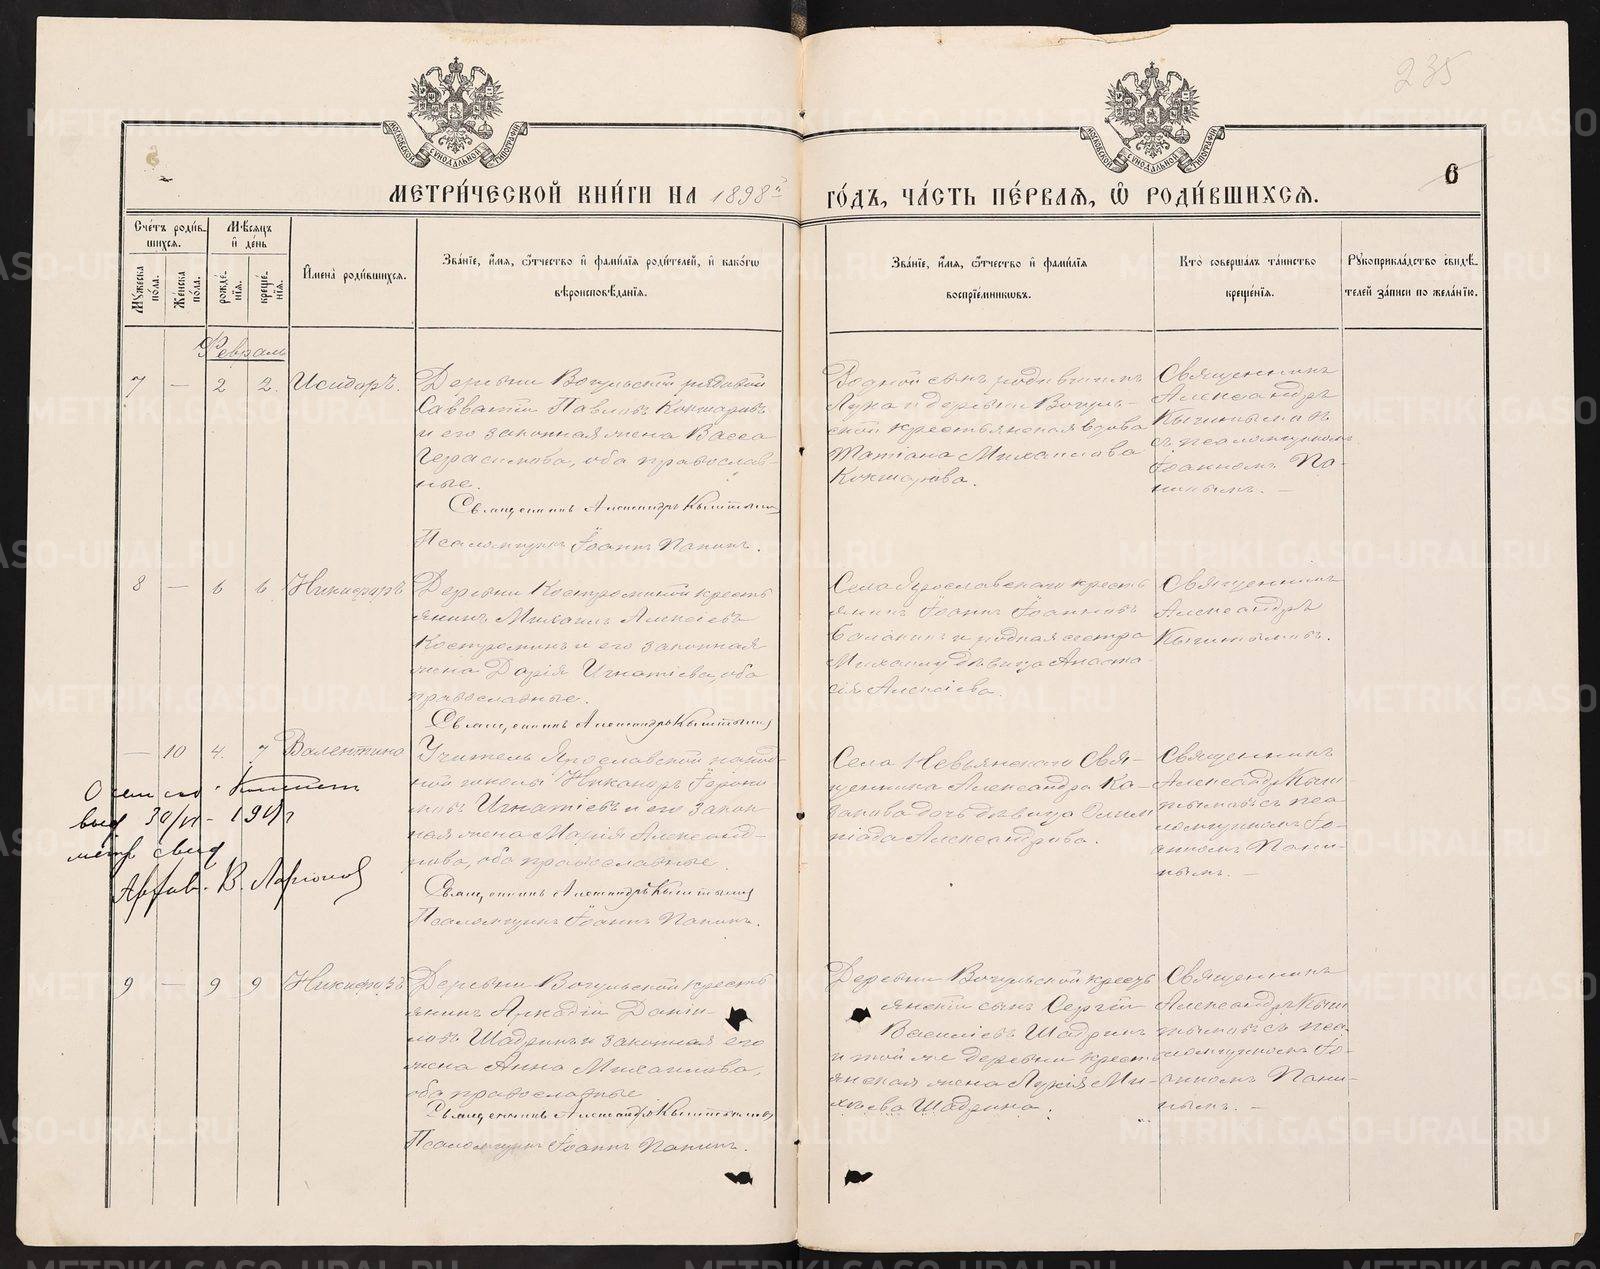 235
6
МЕТРИ́ЧЕСКОЙ КНИ́ГИ НА 1898й ГО́ДЪ, ЧА́СТЬ ПЕ́РВАЯ, Ѽ РОДИ́ВШИХСЯ.
МОСКОВСКОЙ СѴНОДАЛЬНОЙ ТИПОГРАФІИ
МОСКОВСКОЙ СѴНОДАЛЬНОЙ ТИПОГРАФІИ
Сче́тъ роди́в-
шихся.
Мꙋжеска по́ла.
Же́нска по́ла.
Мѣ́сяцъ
и҆ де́нь
рожде́-
нїя.
креще́-
нїя.
И҆мена̀ роди́вшихся.
Зва́нїе, и҆́мя, ѻ҆́тчество и҆ фами́лїя роди́телей, и҆ какѡ́гѡ
вѣроисповѣ́данїя.
Зва́нїе, и҆́мя, ѻ҆́тчество и҆ фами́лїя
воспрїе́мникѡвъ.
Кто̀ соверша́лъ та́инство
креще́нїя.
Рꙋкоприкла́дство свидѣ́-
телей за́писи по жела́нїю.
Февраль
7 — 2 2. Исидоръ.
Деревни Вогульской рядовой
Савватій Павловъ Кокшаровъ
и его законная жена Васса
Герасимова, оба православ-
ные.
Священникъ Александръ Кыштымовъ
Псаломщикъ Іоаннъ Панинъ.
Лука и деревни Вогуль-
ской крестьянская вдова
Татіана Михаилова
Кокшарова.
Священникъ
Александръ
Кыштымовъ
съ псаломщикомъ
Іоанномъ Па-
нинымъ. —
8 — 6 6 Никифоръ
Деревни Костроминой кресть
янинъ Михаилъ Алексіевъ
Костроминъ и его законная
жена Дарія Игнатіева, оба
православные.
Священникъ Александръ Кыштымовъ
Села Ярославскаго кресть
янинъ Іоаннъ Іоанновъ
Балакинъ и родная сестра
Михаилу дѣвица Анаста-
сія Алексіева.
Священникъ
Александръ
Кыштымовъ.
— 10 4. 7 Валентина
Учитель Ярославской народ-
ной школы Никаноръ
Игнатіевъ и его закон-
ная жена Марія Александ-
рова, оба православные.
Священникъ Александръ Кыштымовъ
Псаломщикъ Іоаннъ Панинъ.
Села Невьянскаго Свя-
щенника Александра Ка-
закова дочь дѣвица Олим
піада Александрова.
Священникъ
Александръ Кыш-
тымовъ съ пса-
ломщикомъ Іо-
анномъ Пани-
нымъ. —
выд 30/VI -
метр свид
Архив. В. Ларионов
9 — 9 9 Никифоръ
Деревни Вогульской кресть
янинъ Аркадій Даніи-
ловъ Шадринъ и законная его
жена Анна Михаилова,
оба православные
Священникъ Александръ Кыштымовъ
Псаломщикъ Іоаннъ Панинъ.
Деревни Вогульской кресть
янскій сынъ Сергій
Василіевъ Шадринъ
и той же деревни кресть
янская жена Лукія Ми-
хѣева Шадрина.
Священникъ
Александръ Кыш
тымовъ съ пса-
ломщикомъ Іо-
анномъ Пани-
нымъ. —
METRIKI.GASO-URAL.RU